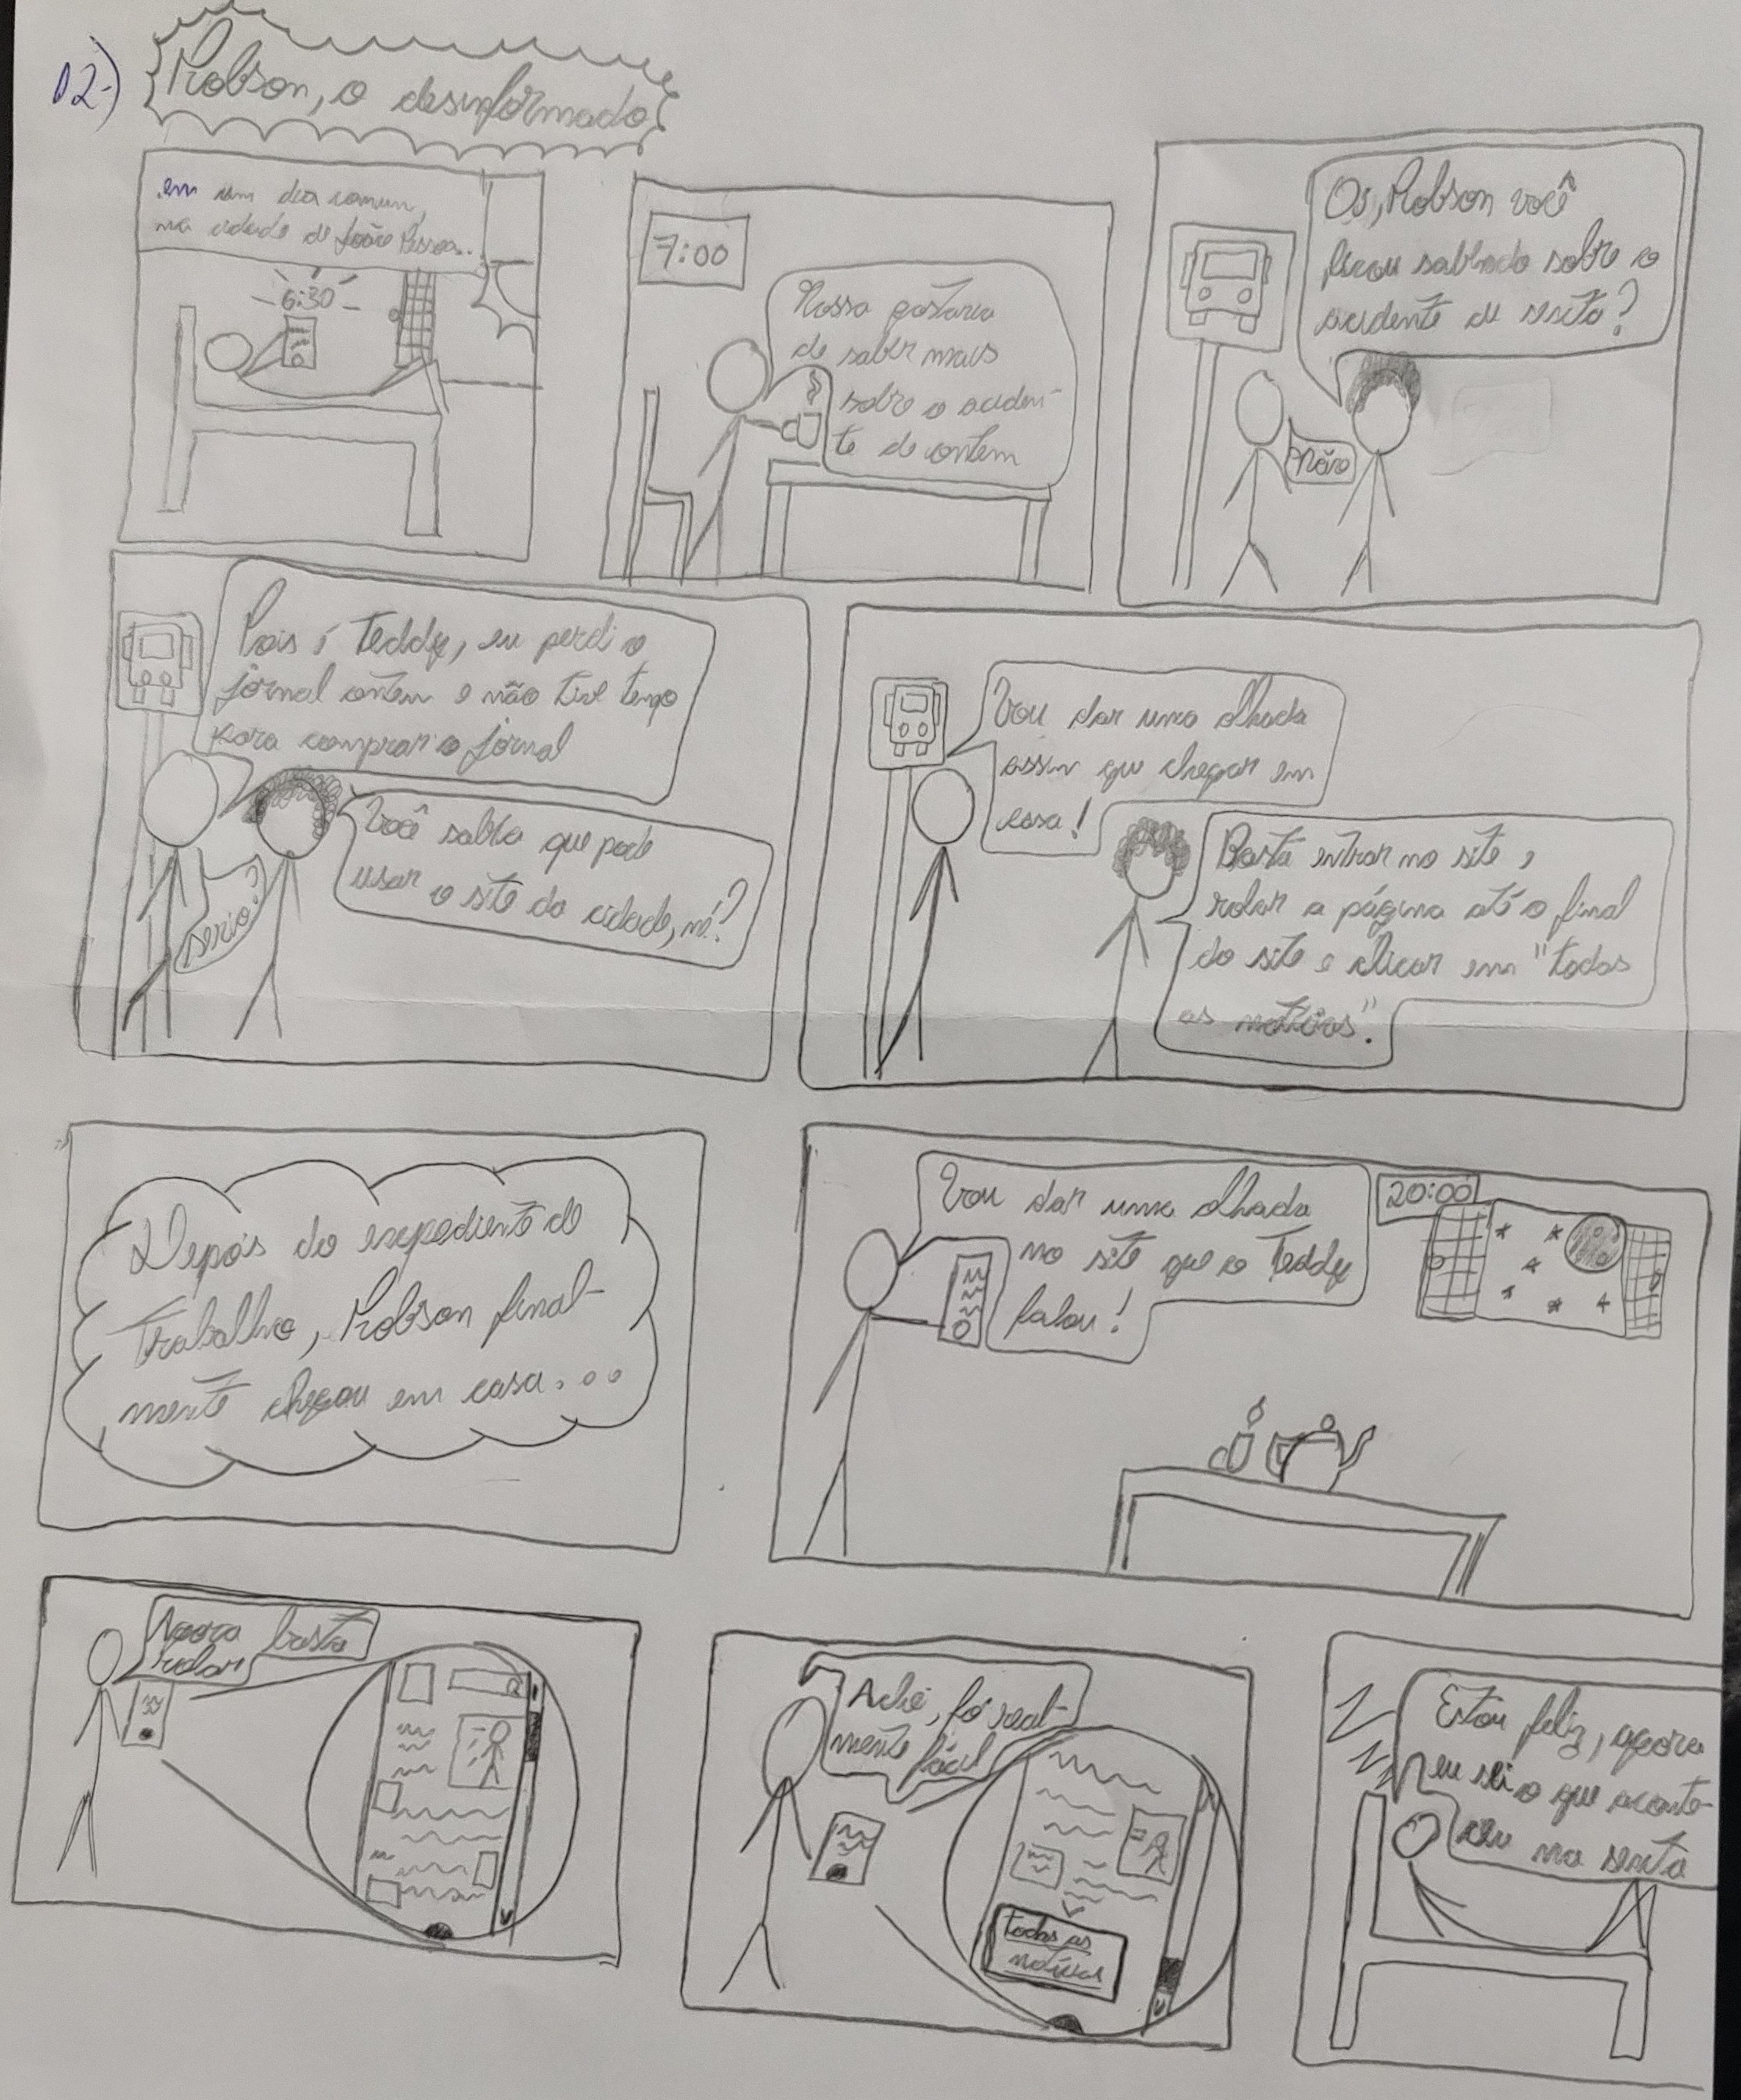 02-)
Robson, o desinformado
em um dia comum,
na cidade de João Pessoa...
6:30
7:00
Nossa gostaria
de saber mais
sobre o aciden-
te de ontem
Oi, Robson você
ficou sabendo sobre o
acidente de sexta?
Não
Pois é Teddy, eu perdi o
jornal ontem e não tive tempo
para comprar o jornal
Você sabia que pode
usar o site da cidade, né?
serio?
Vou dar uma olhada
assim que chegar em
casa!
Basta entrar no site e
rolar a página até o final
do site e clicar em "todas
as notícias".
Depois do expediente de
Trabalho, Robson final-
mente chegou em casa...
Vou dar uma olhada
no site que o Teddy
falou!
20:00
Agora basta
rolar
Achei, foi real-
mente fácil
todas as
notícias
Estou feliz, agora
eu sei o que aconte-
ceu na sexta